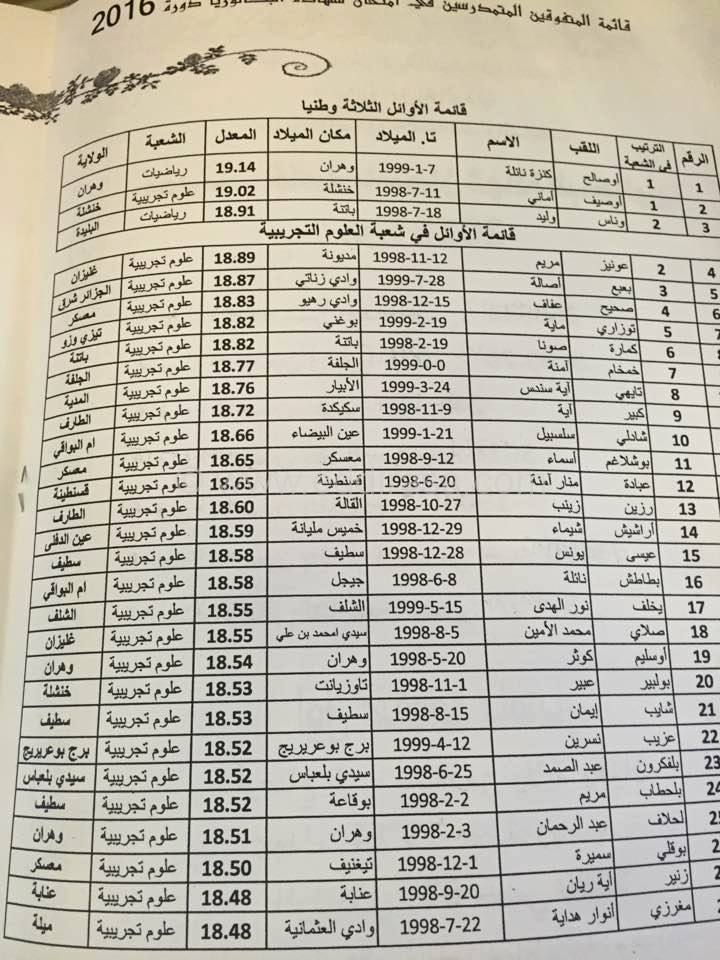 قائمة المتفوقين المتمدرسين في امتحان شهادة البكالوريا دورة 2016
قائمة الأوائل الثلاثة وطنيا
الرقم الترتيب في الشعبة اللقب الاسم تا. الميلاد مكان الميلاد المعدل الشعبة الولاية
1 1 أوصالح كنزة نائلة 1999-1-7 وهران 19.14 رياضيات وهران
2 1 أوصيف أماني 1998-7-11 خنشلة 19.02 علوم تجريبية خنشلة
3 2 وناس وليد 1998-7-18 باتنة 18.91 رياضيات البليدة
قائمة الأوائل في شعبة العلوم التجريبية
4 2 عونيز مريم 1998-11-12 مديونة 18.89 علوم تجريبية غليزان
5 3 بعيع أصالة 1999-7-28 وادي زناتي 18.87 علوم تجريبية الجزائر شرق
6 4 صحيح عفاف 1998-12-15 وادي رهيو 18.83 علوم تجريبية معسكر
7 5 توزاري ماية 1999-2-19 بوغني 18.82 علوم تجريبية تيزي وزو
6 كمارة صونا 1998-2-19 باتنة 18.82 علوم تجريبية باتنة
7 خمخام آمنة 1999-0-0 الجلفة 18.77 علوم تجريبية الجلفة
8 تايهي آية سندس 1999-3-24 الأبيار 18.76 علوم تجريبية المدية
9 كبير آية 1998-11-9 سكيكدة 18.72 علوم تجريبية الطارف
10 شادلي سلسبيل 1999-1-21 عين البيضاء 18.66 علوم تجريبية ام البواقي
11 بوشلاغم أسماء 1998-9-12 معسكر 18.65 علوم تجريبية معسكر
12 عبادة منار آمنة 1998-6-20 قسنطينة 18.65 علوم تجريبية قسنطينة
13 رزين زينب 1998-10-27 القالة 18.60 علوم تجريبية الطارف
14 أراشيش شيماء 1998-12-29 خميس مليانة 18.59 علوم تجريبية عين الدفلى
15 عيسى يونس 1998-12-28 سطيف 18.58 علوم تجريبية سطيف
16 بطاطش نائلة 1998-6-8 جيجل 18.58 علوم تجريبية ام البواقي
17 يخلف نور الهدى 1999-5-15 الشلف 18.55 علوم تجريبية الشلف
18 صلاي محمد الأمين 1998-8-5 سيدي امحمد بن علي 18.55 علوم تجريبية غليزان
19 أوسليم كوثر 1998-5-20 وهران 18.54 علوم تجريبية وهران
20 بولبير عبير 1998-11-1 تاوزيانت 18.53 علوم تجريبية خنشلة
21 شايب إيمان 1998-8-15 سطيف 18.53 علوم تجريبية سطيف
22 عزيب نسرين 1999-4-12 برج بوعريريج 18.52 علوم تجريبية برج بوعريريج
23 بلفكرون عبد الصمد 1998-6-25 سيدي بلعباس 18.52 علوم تجريبية سيدي بلعباس
24 بلحطاب مريم 1998-2-2 بوقاعة 18.52 علوم تجريبية سطيف
لحلاف عبد الرحمان 1998-2-3 وهران 18.51 علوم تجريبية وهران
بوقلي سميرة 1998-12-1 تيغنيف 18.50 علوم تجريبية معسكر
زنير آية ريان 1998-9-20 عنابة 18.48 علوم تجريبية عنابة
مغرزي أنوار هداية 1998-7-22 وادي العثمانية 18.48 علوم تجريبية ميلة